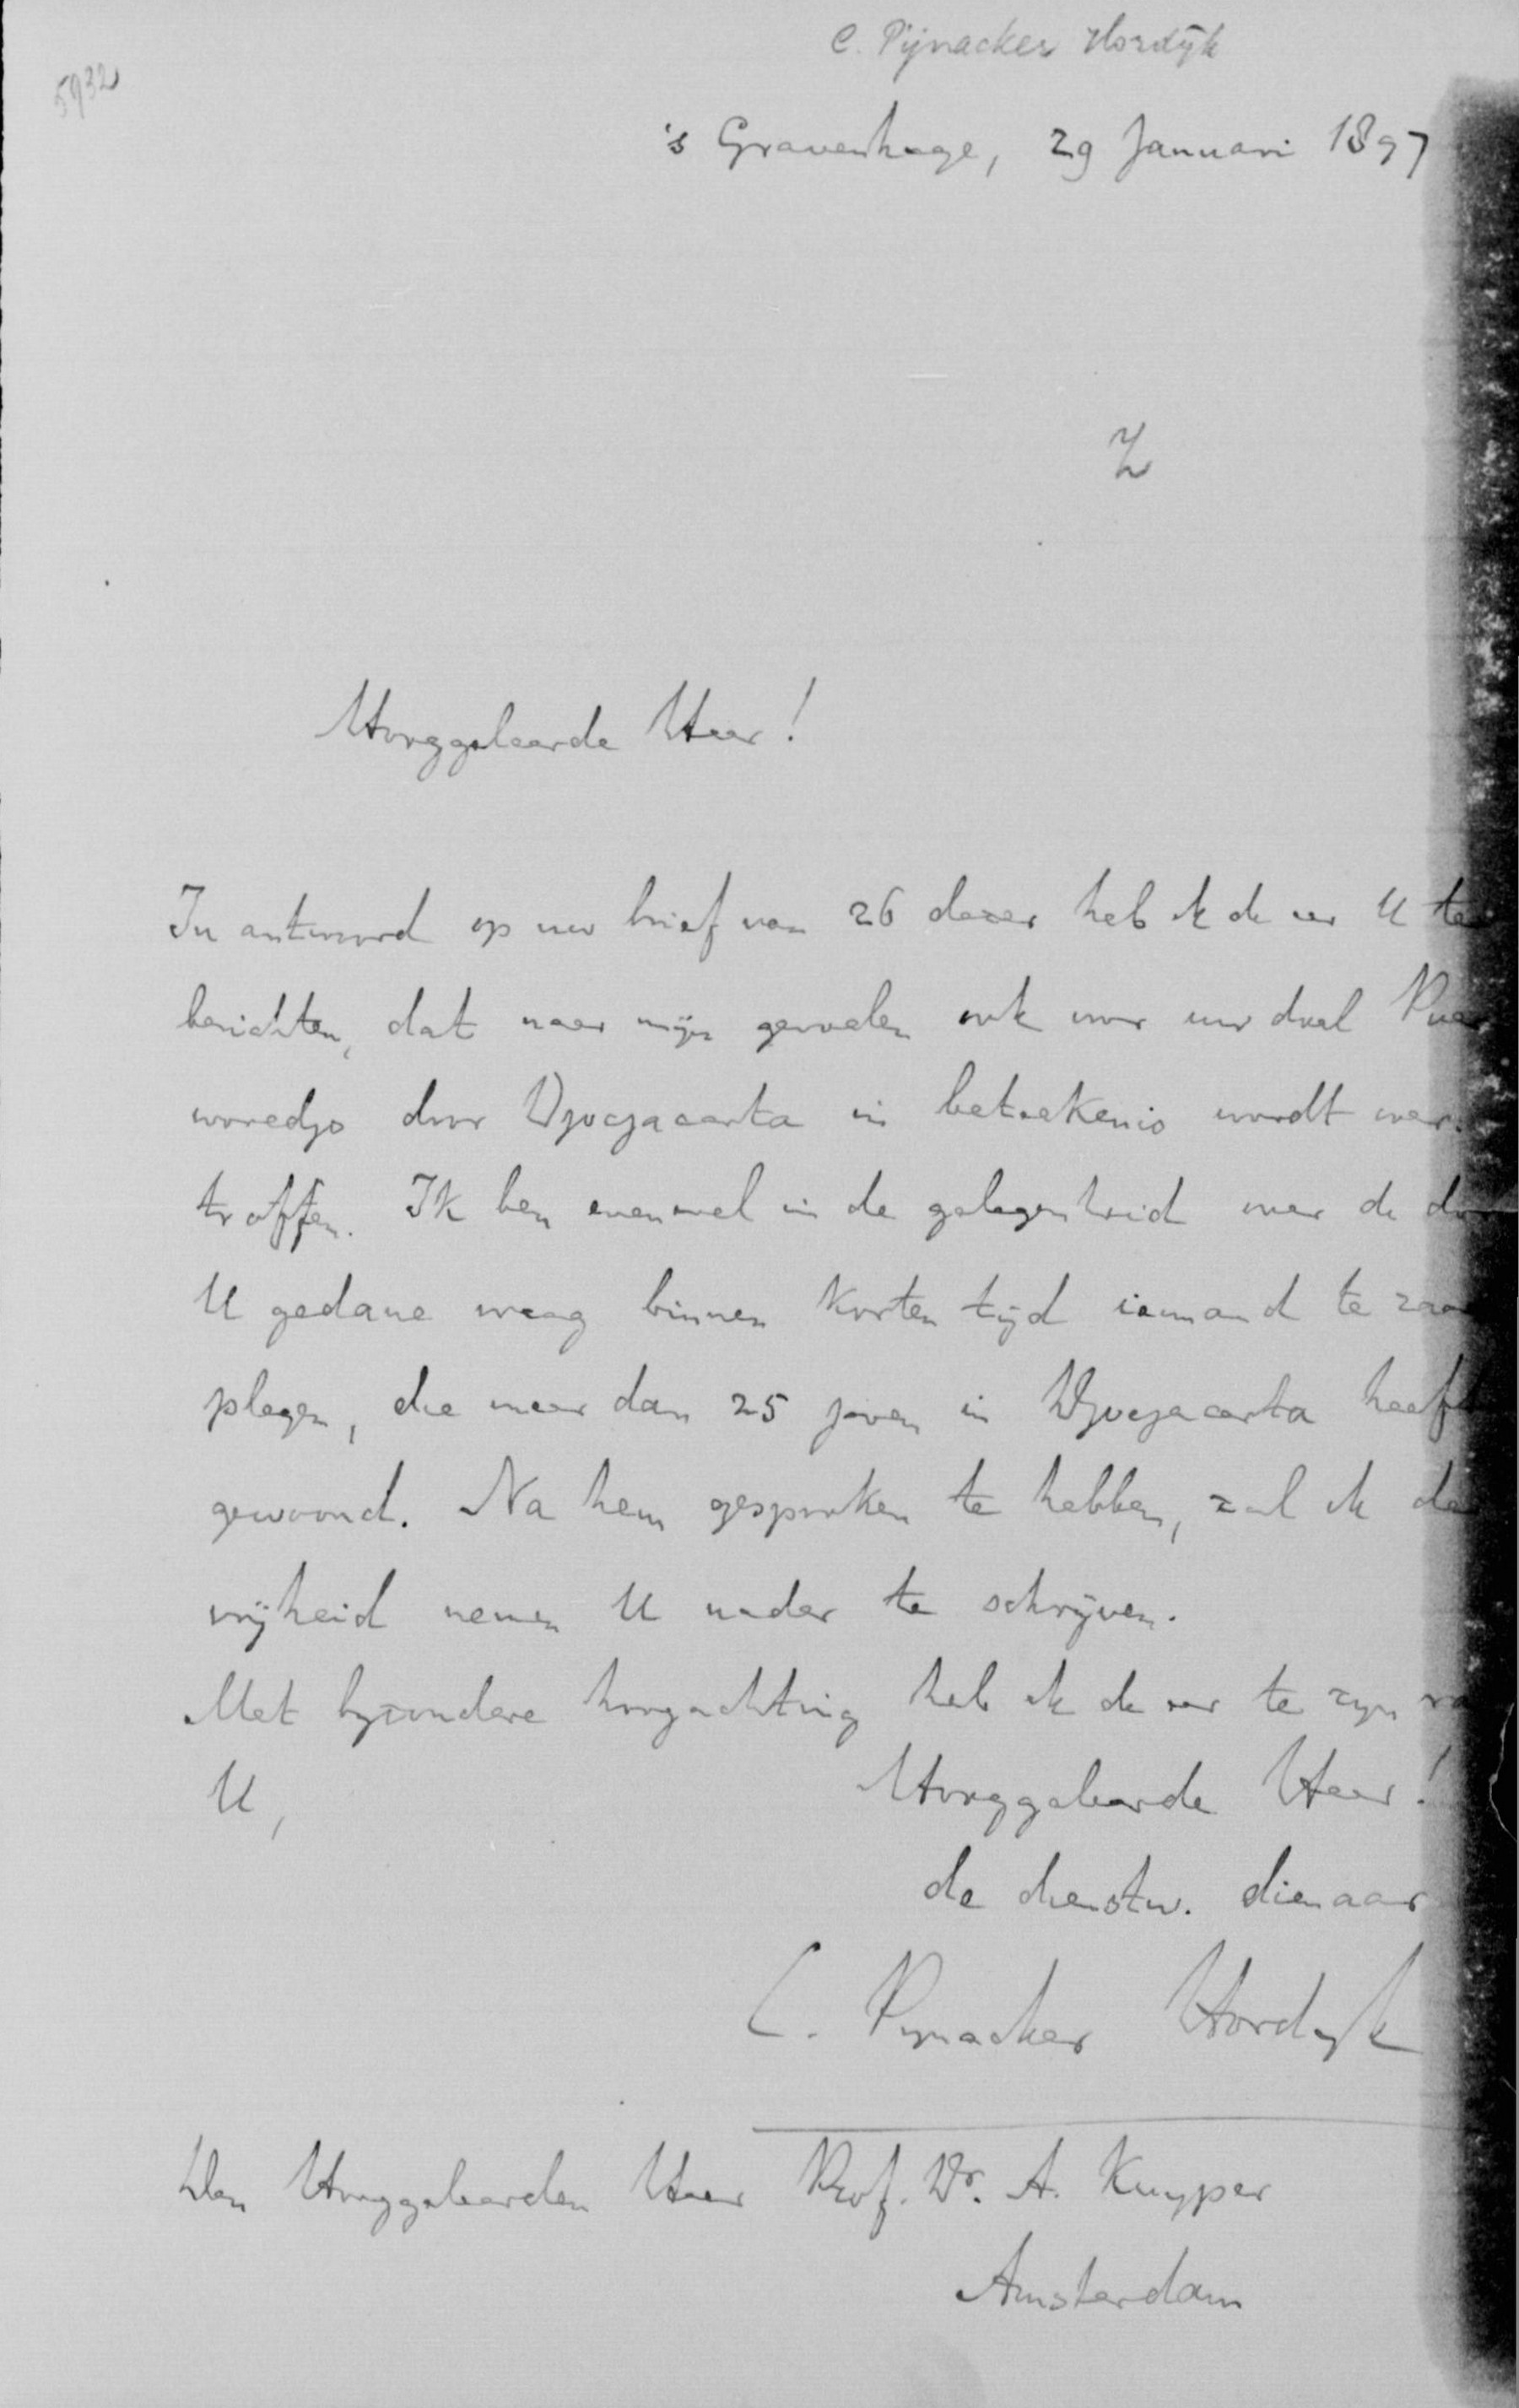 C. Pijnacker Hordijk
5932
's Gravenhage, 29 Januari 1897
Z
Hooggeleerde Heer!
In antwoord op uw brief van 26 dezer heb ik de eer U te
berichten, dat naar mijn gevoelen ook voor uw doel Poer
woredjo door Djocjacarta in beteekenis wordt over-
troffen. Ik ben evenwel in de gelegenheid over de door
U gedane vraag binnen korten tijd iemand te raad
plegen, die meer dan 25 jaren in Djocjacarta heeft
gewoond. Na hem gesproken te hebben, zal ik de
vrijheid nemen U nader te schrijven.
Met byzondere hoogachting heb ik de eer te zyn van
U,
Hooggeleerde Heer!
de dienstw. dienaar
C. Pynacker Hordyk
Den Hooggeleerden Heer Prof. Dr. A. Kuyper
Amsterdam